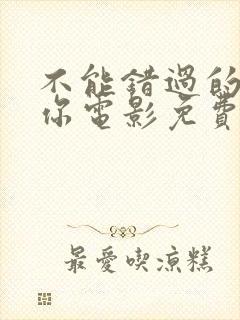 不能錯過的
你電影免費
最愛喫涼糕